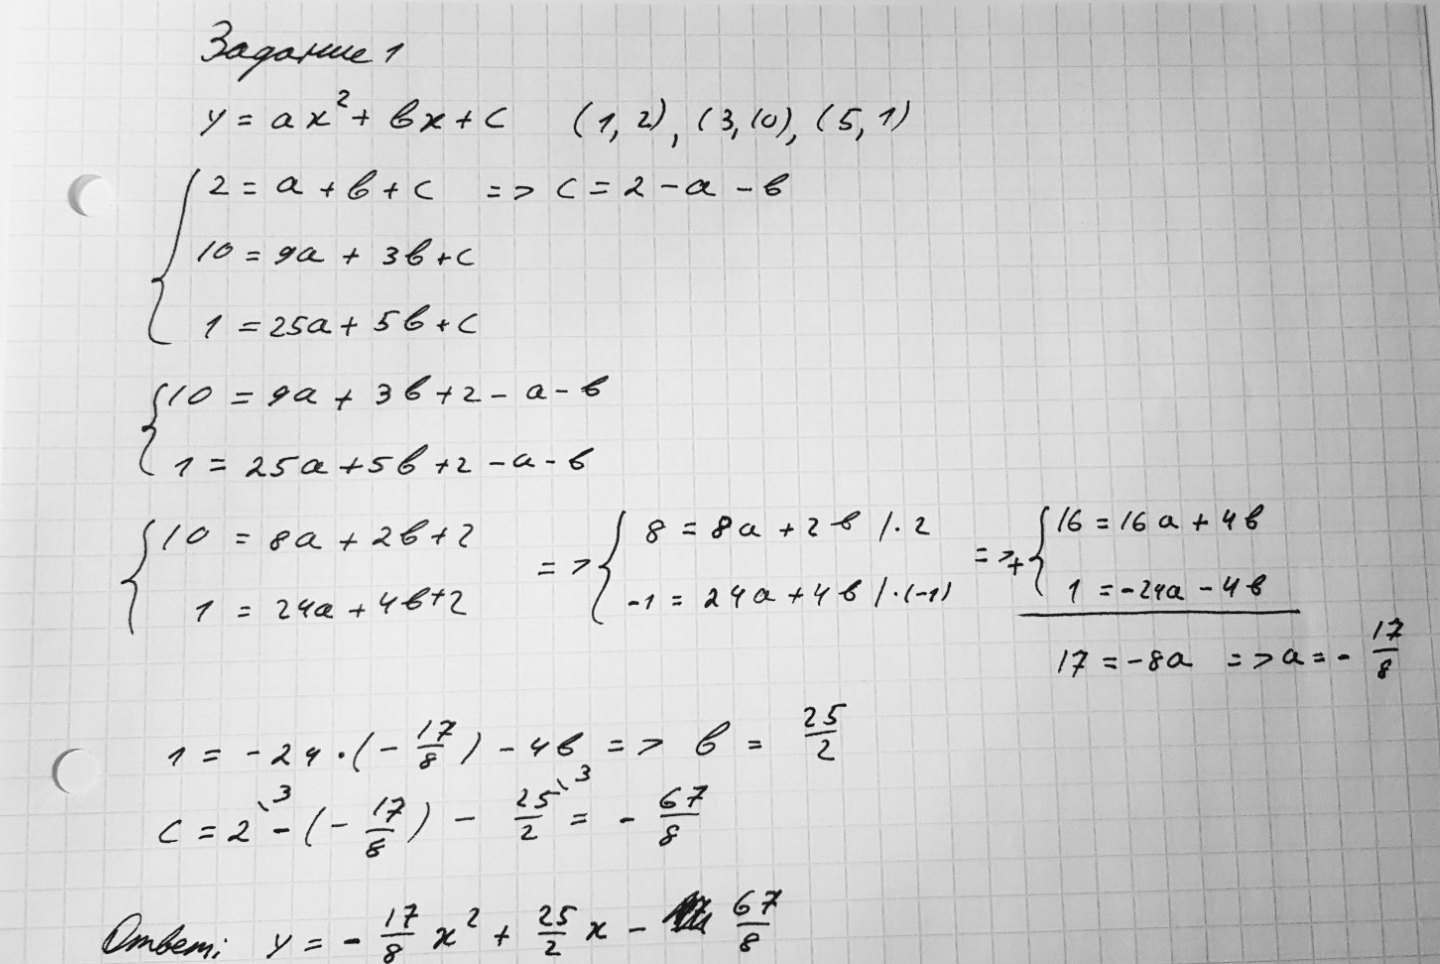 Задание 1
y = ax² + bx + c (1, 2), (3, 10), (5, 1)
2 = a + b + c => c = 2 - a - b
10 = 9a + 3b + c
1 = 25a + 5b + c
10 = 9a + 3b + 2 - a - b
1 = 25a + 5b + 2 - a - b
10 = 8a + 2b + 2 => 8 = 8a + 2b | · 2 => + 16 = 16a + 4b
1 = 24a + 4b + 2 -1 = 24a + 4b | · (-1) 1 = -24a - 4b
17 = -8a => a = - 17/8
1 = -24 · (- 17/8) - 4b => b = 25/2
c = 2\³ - (- 17/8) - 25/2\³ = - 67/8
Ответ: y = - 17/8 x² + 25/2 x - 67/8